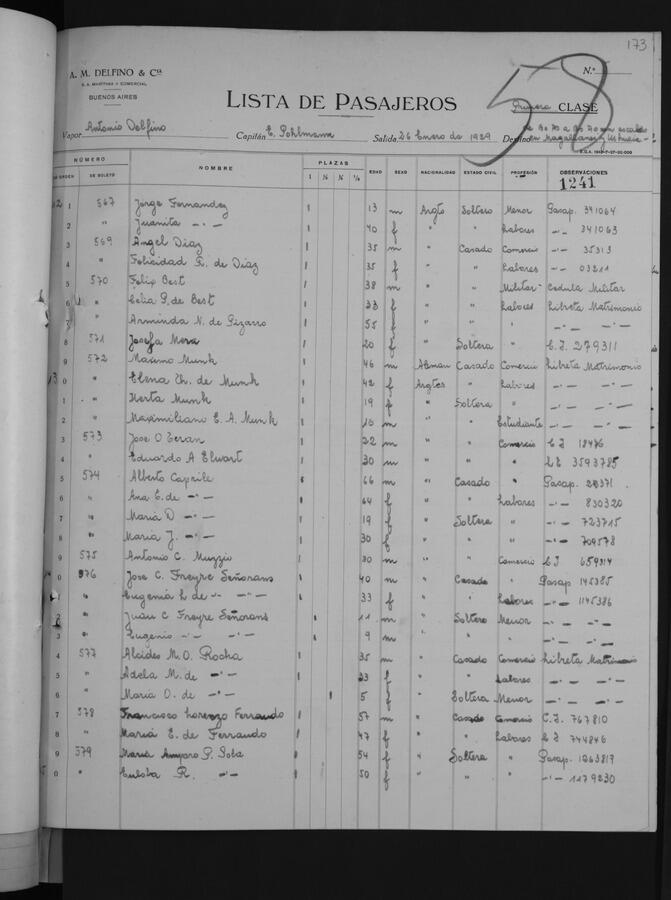 173
A. M. DELFINO & Cía
S. A. MARÍTIMA Y COMERCIAL
BUENOS AIRES
N.º 58
LISTA DE PASAJEROS
Primera CLASE
Vapor Antonio Delfino Capitán E. Pohlmann Salida 26 Enero de 1939 Destino de Bs As a Bs As con escalas
en Magallanes y Ushuaia
NÚMERO NOMBRE PLAZAS EDAD SEXO NACIONALIDAD ESTADO CIVIL PROFESIÓN OBSERVACIONES
DE ORDEN DE BOLETO 1 ½ ¼ 1241
12 1 567 Jorge Fernandez 1 13 m Argto Soltero Menor Pasap. 341064
2 " Juanita -"- 1 40 f " " Labores -"- 341063
3 569 Angel Diaz 1 35 m " Casado Comercio -"- 35313
4 " Felicidad R. de Diaz 1 35 f " " Labores -"- 03211
5 570 Felix Best 1 38 m " " Militar Cedula Militar
6 " Celia P. de Best 1 33 f " " Labores Libreta Matrimonio
7 " Arminda N. de Pizarro 1 55 f " " " -"- -"-
8 571 Josefa Mera 1 20 f " Soltera " C.I. 279311
9 572 Maximo Munk 1 46 m Aleman Casado Comercio Libreta Matrimonio
13 0 " Elena Ch. de Munk 1 42 f Argtos " Labores -"- -"-
1 " Herta Munk 1 19 f " Soltera " -"- -"-
2 " Maximiliano E. A. Munk 1 15 m " " Estudiante -"- -"-
3 573 Jose O Teran 1 22 m " " Comercio C I 18476
4 " Eduardo A Elwart 1 30 m " " " L E 3593785
5 574 Alberto Caprile 1 66 m " Casado " Pasap. 20371
6 " Ana E. de -"- 1 64 f " " Labores -"- 830320
7 " Maria D -"- 1 19 f " Soltera " -"- 723715
8 " Maria J. -"- 1 30 f " " " -"- 709578
9 575 Antonio C. Muzzio 1 30 m " " Comercio C I 659314
0 576 Jose C. Freyre Señorans 1 40 m " Casado " Pasap 145385
1 " Eugenia L de -"- -"- 1 33 f " " Labores -"- 1145386
2 " Juan C Freyre Señorans 1 11 m " Soltero Menor -"- -"-
3 " Eugenio -"- -"- 1 9 m " " " -"- -"-
4 577 Alcides M. O. Rocha 1 35 m " Casado Comercio Libreta Matrimonio
5 " Adela M. de -"- 1 23 f " " Labores -"- -"-
6 " Maria O. de -"- 1 5 f " Soltera Menor -"- -"-
7 578 Francisco Lorenzo Ferrando 1 57 m " Casado Comercio C. I. 767810
8 " Maria E. de Ferrando 1 47 f " " Labores C I 744846
9 579 Maria Amparo P. Sota 1 54 f " Soltera " Pasap. 1263817
0 " R. -"- 1 50 f " " " -"- 1179230